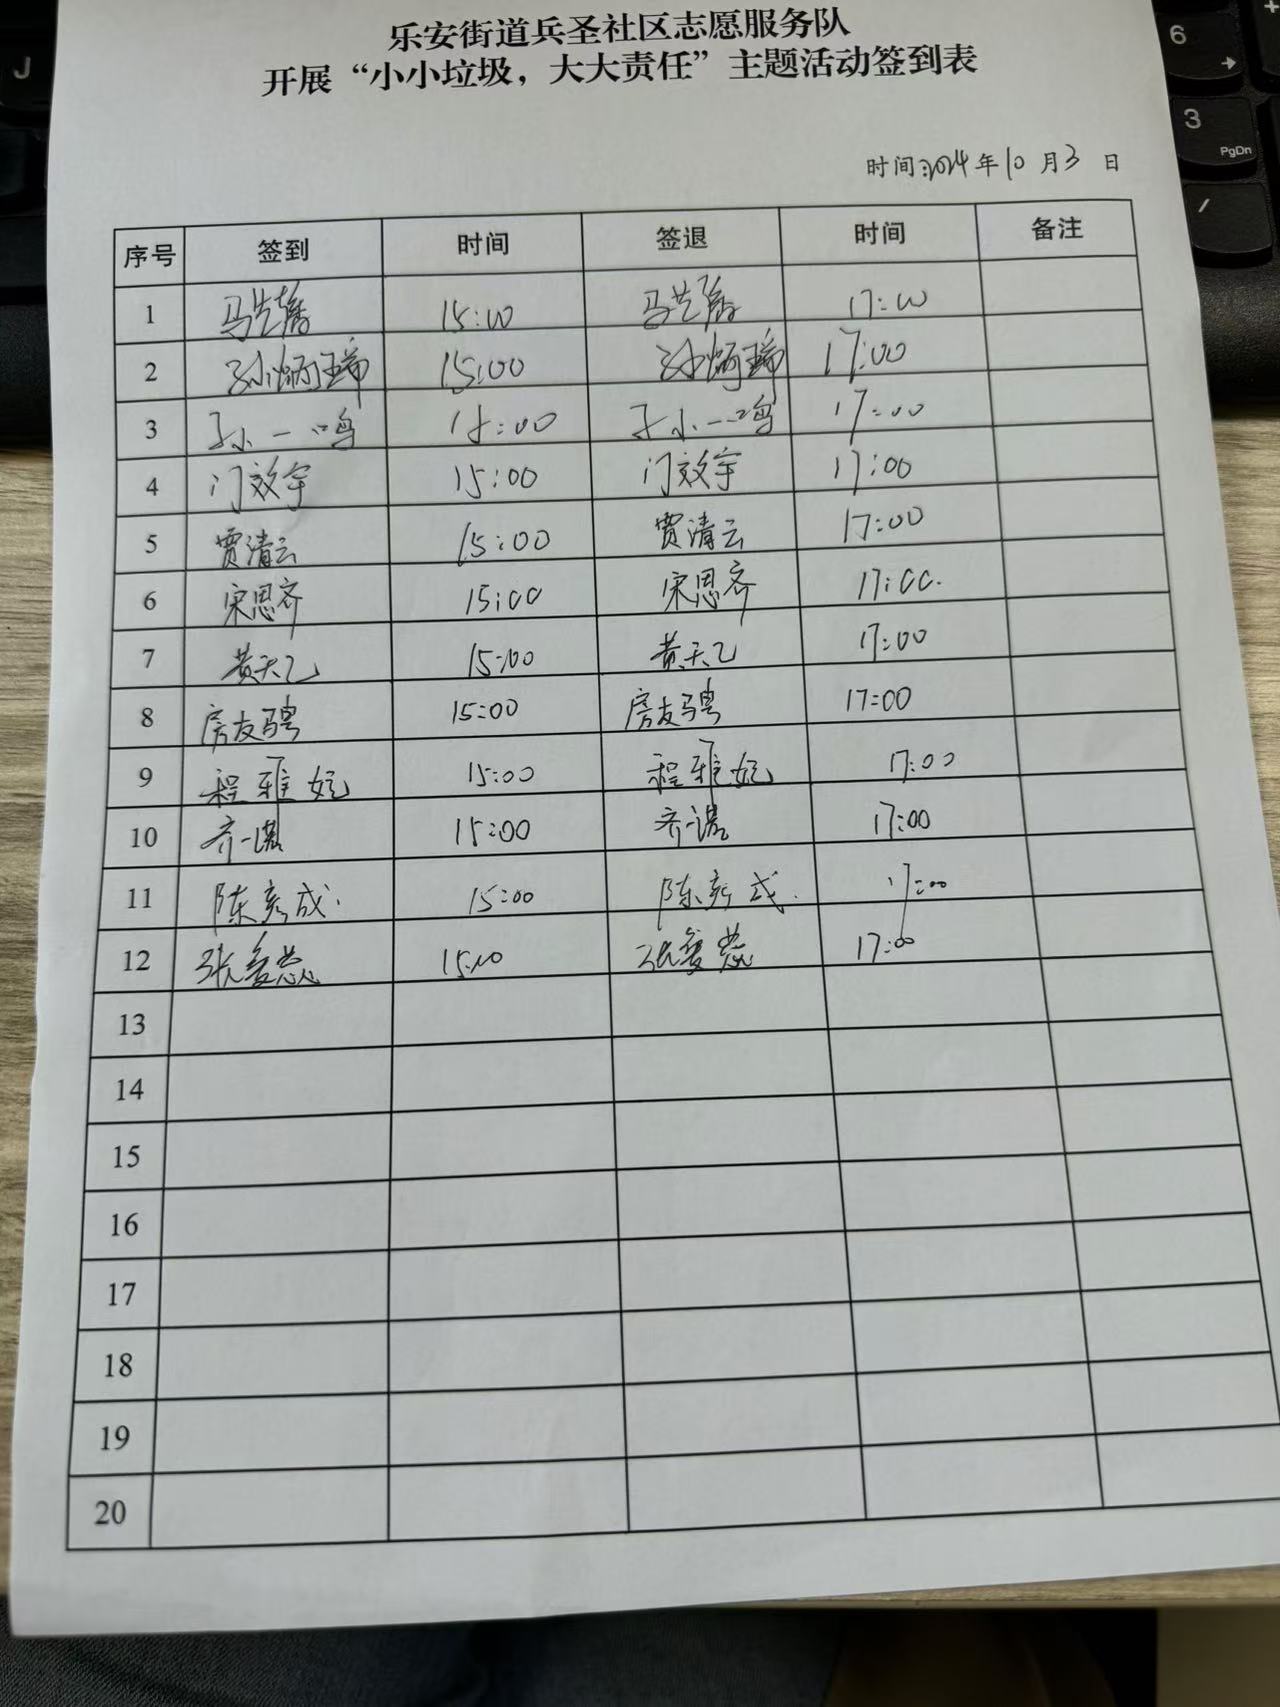 乐安街道兵圣社区志愿服务队
开展“小小垃圾，大大责任”主题活动签到表
时间:2024年10月3日
序号 签到 时间 签退 时间 备注
1 马艺 15:00 马艺 17:00
2 孙炳瑞 15:00 孙炳瑞 17:00
3 孙一鸣 15:00 孙一鸣 17:00
4 门效宇 15:00 门效宇 17:00
5 贾清云 15:00 贾清云 17:00
6 宋思齐 15:00 宋思齐 17:00.
7 黄天乙 15:00 黄天乙 17:00
8 房友骋 15:00 房友骋 17:00
9 程雅妮 15:00 程雅妮 17:00
10 齐一诺 15:00 齐一诺 17:00
11 陈彦成. 15:00 陈彦成. 17:00
12 张蕊 15:00 张蕊 17:00
13
14
15
16
17
18
19
20
J
6
3
PgDn
/